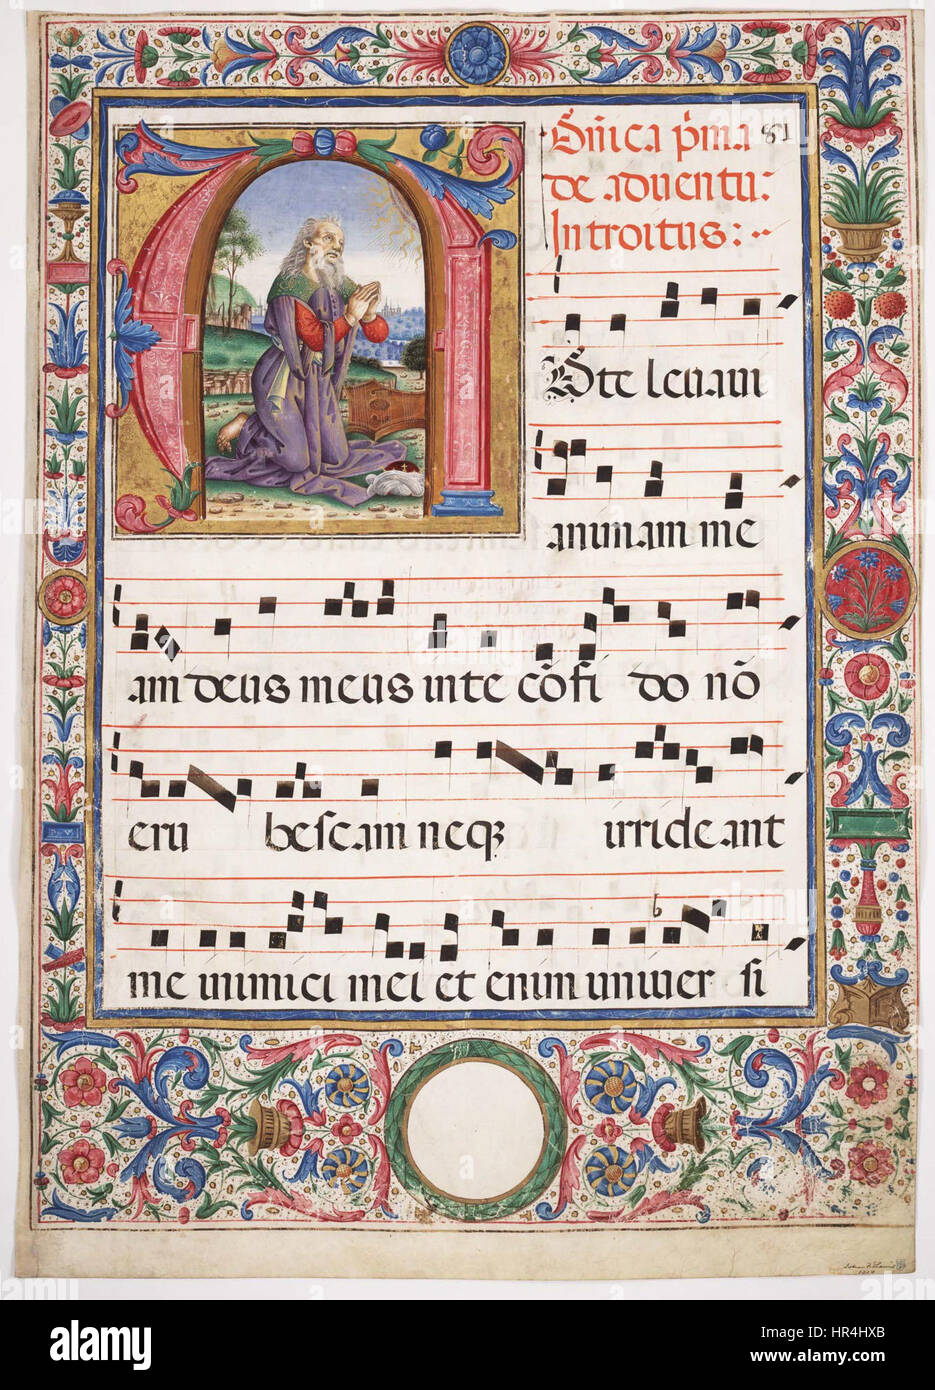 Dñica p̄ma 81
de aduentu:
Introitus:
Ad te leuaui
animam me
am deus meus in te cōfi do nō
eru bescam neqꝫ irrideant
me inimici mei et enim uniuer si
a
alamy
Image ID: HR4HXB
www.alamy.com